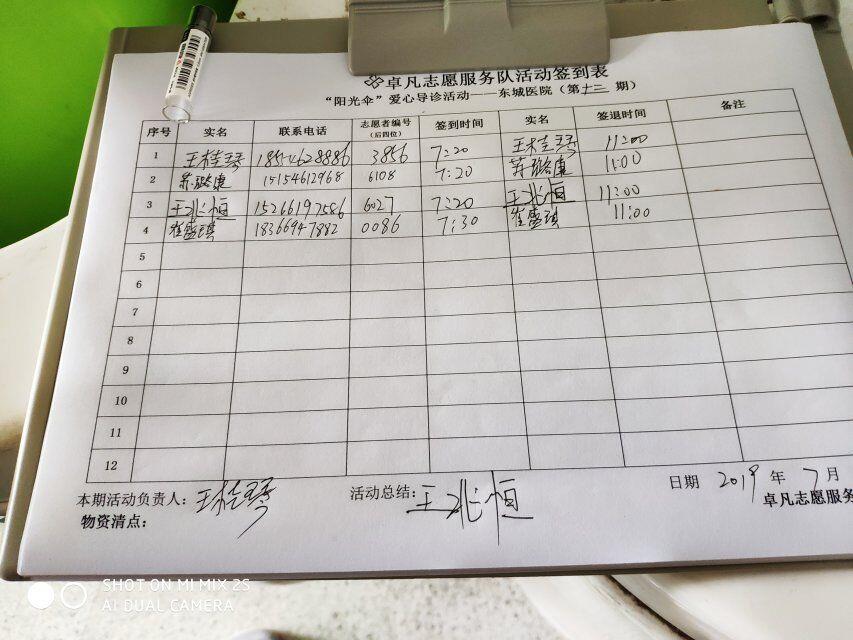 卓凡志愿服务队活动签到表
“阳光伞”爱心导诊活动——东城医院（第十三期）
序号 实名 联系电话 志愿者编号（后四位） 签到时间 实名 签退时间 备注
1 王桂琴 18554628886 3856 7:20 王桂琴 11:00
2 15154612968 6108 7:20 11:00
3 王兆恒 15266197586 6027 7:20 王兆恒 11:00
4 崔盛琪 18366947882 0086 7:30 崔盛琪 11:00
5
6
7
8
9
10
11
12
本期活动负责人：王桂琴 活动总结：王兆恒 日期 2019年7月
物资清点： 卓凡志愿服务
SHOT ON MI MIX 2S
AI DUAL CAMERA